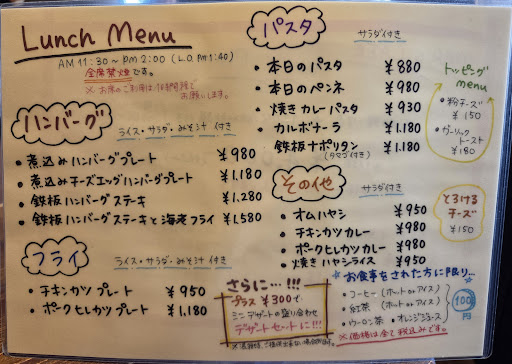 Lunch Menu
AM 11:30～PM 2:00 (L.O. PM 1:40)
全席禁煙です。
※ お席のご利用は1時間程でお願いします。
ハンバーグ
ライス・サラダ・みそ汁 付き
• 煮込みハンバーグプレート ¥980
• 煮込みチーズエッグハンバーグプレート ¥1.180
• 鉄板ハンバーグステーキ ¥1.280
• 鉄板ハンバーグステーキと海老フライ ¥1.580
フライ
ライス・サラダ・みそ汁 付き
• チキンカツ プレート ¥950
• ポークヒレカツ プレート ¥1.180
パスタ
サラダ付き
• 本日のパスタ ¥880
• 本日のペンネ ¥980
• 焼きカレーパスタ ¥930
• カルボナーラ ¥1.180
• 鉄板ナポリタン ¥1.180
(タマゴ付き)
トッピング
menu
• 粉チーズ
¥150
• ガーリック
トースト
¥180
その他
サラダ付き
• オムハヤシ ¥950
• チキンカツカレー ¥980
• ポークヒレカツカレー ¥980
• 焼きハヤシライス ¥950
とろける
チーズ
¥150
さらに…!!!
プラス ¥300で
ミニデザートの盛り合わせ
デザートセットに!!!
★お食事をされた方に限り…
• コーヒー (ホット or アイス)
• 紅茶 (ホット or アイス)
• ウーロン茶 • オレンジジュース
100円
※価格は全て税込みです。